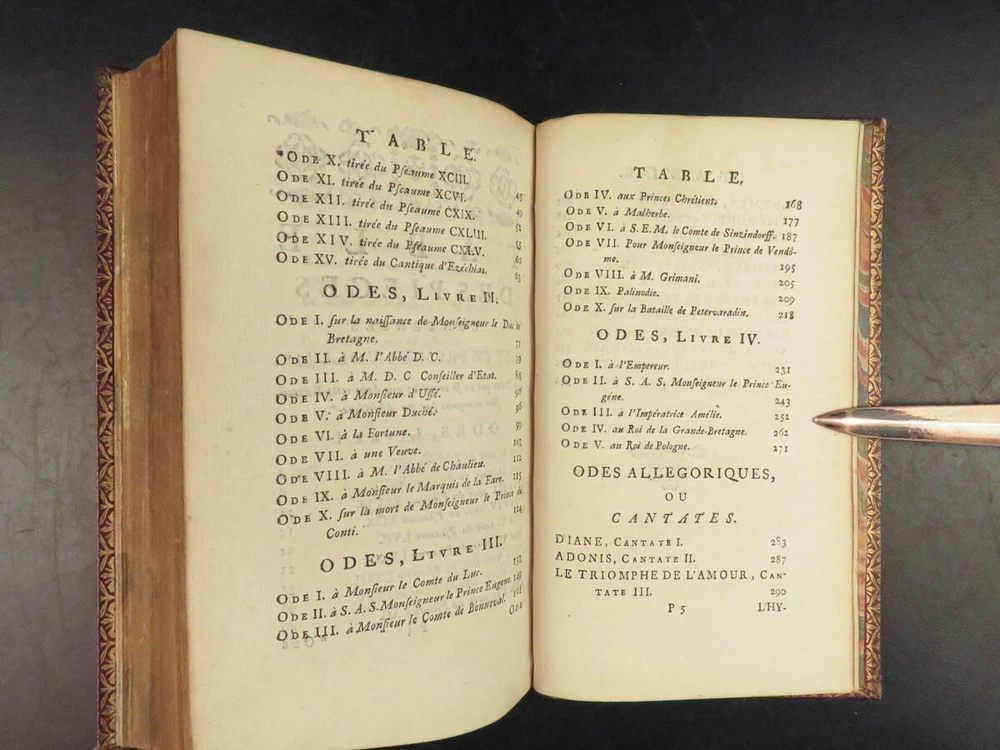 TABLE.
ODE X. tirée du Pſeaume XCIII. 45
ODE XI. tirée du Pſeaume XCVI. 49
ODE XII. tirée du Pſeaume CXIX. 52
ODE XIII. tirée du Pſeaume CXLIII.
ODE XIV. tirée du Pſeaume CXLV. 60
ODE XV. tirée du Cantique d'Ezéchias. 63
ODES, LIVRE II.
ODE I. ſur la naiſſance de Monſeigneur le Duc de
Bretagne. 71
ODE II. à M. l'Abbé D. C.
ODE III. à M. D. C Conſeiller d'Etat.
ODE IV. à Monſieur d'Uſſé.
ODE V. à Monſieur Duché. 96
ODE VI. à la Fortune. 99
ODE VII. à une Veuve.
ODE VIII. à M. l'Abbé de Chaulieu. 112
ODE IX. à Monſieur le Marquis de la Fare. 115
ODE X. ſur la mort de Monſeigneur le Prince de
Conti. 124
ODES, LIVRE III.
ODE I. à Monſieur le Comte du Luc. 132
ODE II. à S. A. S. Monſeigneur le Prince Eugene. 149
ODE III. à Monſieur le Comte de Bonneval.
ODE
TABLE.
ODE IV. aux Princes Chrétiens. 168
ODE V. à Malherbe. 177
ODE VI. à S. E. M. le Comte de Sinzindorff. 187
ODE VII. Pour Monſeigneur le Prince de Vendô-
me. 195
ODE VIII. à M. Grimani. 205
ODE IX. Palinodie. 209
ODE X. ſur la Bataille de Petervaradin. 218
ODES, LIVRE IV.
ODE I. à l'Empereur. 231
ODE II. à S. A. S. Monſeigneur le Prince Eu-
géne. 243
ODE III. à l'Impératrice Amélie. 252
ODE IV. au Roi de la Grande-Bretagne. 262
ODE V. au Roi de Pologne. 271
ODES ALLEGORIQUES,
OU
CANTATES.
DIANE, CANTATE I. 283
ADONIS, CANTATE II. 287
LE TRIOMPHE DE L'AMOUR, CAN-
TATE III. 290
P 5 L'HY-